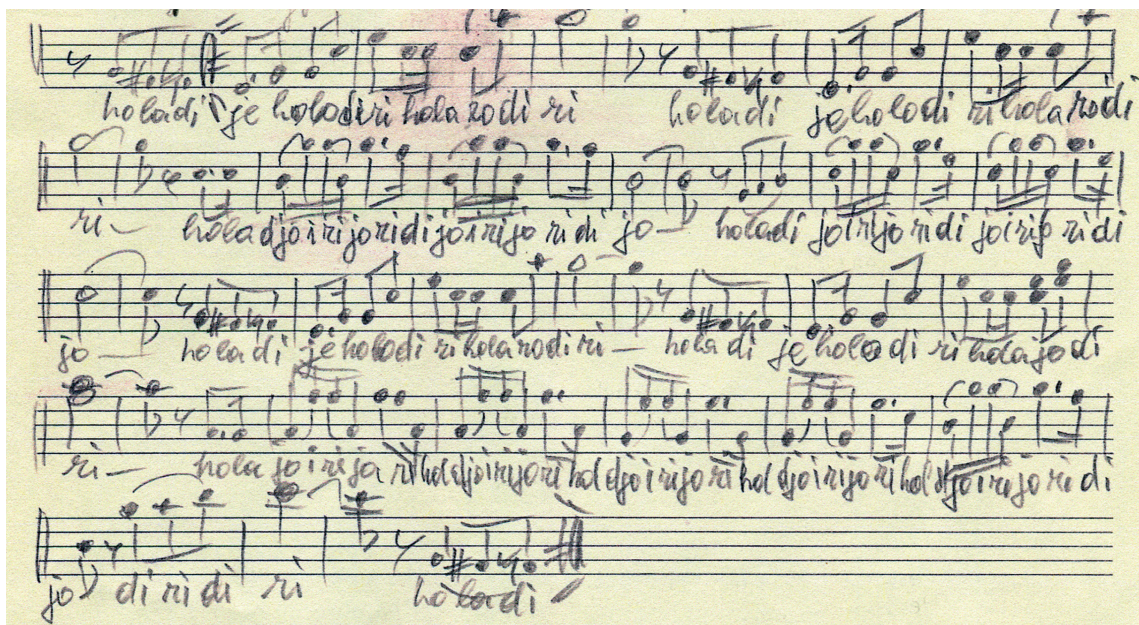 holadi je holodiri holarodi ri holadi je holodi ri holarodi
ri- holadjoirijoridi joirijo ridi jo- holadi joirijo ridi joirijo ridi
jo- holadi je holodi ri holarodi ri- holadi je holodi ri holajodi
ri- hola joirijo ri holdjoirijori holdjoirijori holdjoirijori holdjoirijo ridi
jo diridi ri holadi